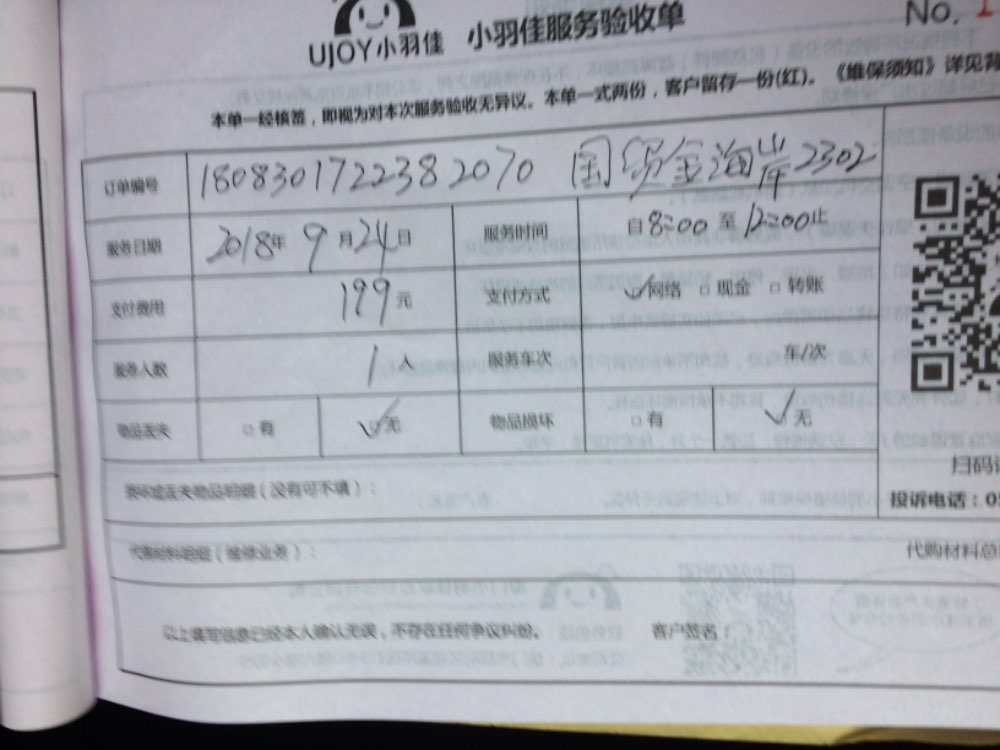 UJOY小羽佳 小羽佳服务验收单 No. 1
本单一经核签，即视为对本次服务验收无异议。本单一式两份，客户留存一份(红)。《维保须知》详见背
订单编号 1808301722382070 国贸金海岸2302
服务日期 2018年 9月24日 服务时间 自8:00 至 12:00止
支付费用 199元 支付方式 ☑网络 □ 现金 □ 转账
服务人数 1人 服务车次 车/次
物品丢失 □ 有 ☑无 物品损坏 □ 有 ☑无
扫码
损坏或丢失物品明细（没有可不填）：
投诉电话：05
代购材料明细（维修业务）： 代购材料总
以上填写信息已经本人确认无误，不存在任何争议纠纷。 客户签名：